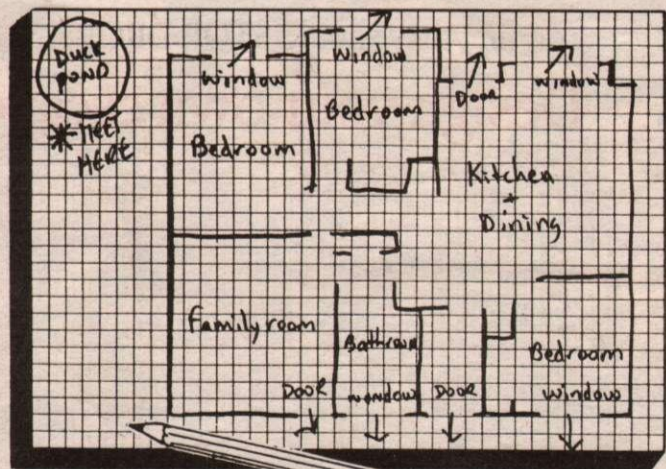 Duck
POND
* MEET
HERE
Window
Bedroom
Window
Bedroom
DOOR
Window
Kitchen
+
Dining
Family room
Bathroom
window
DOOR
DOOR
Bedroom
window